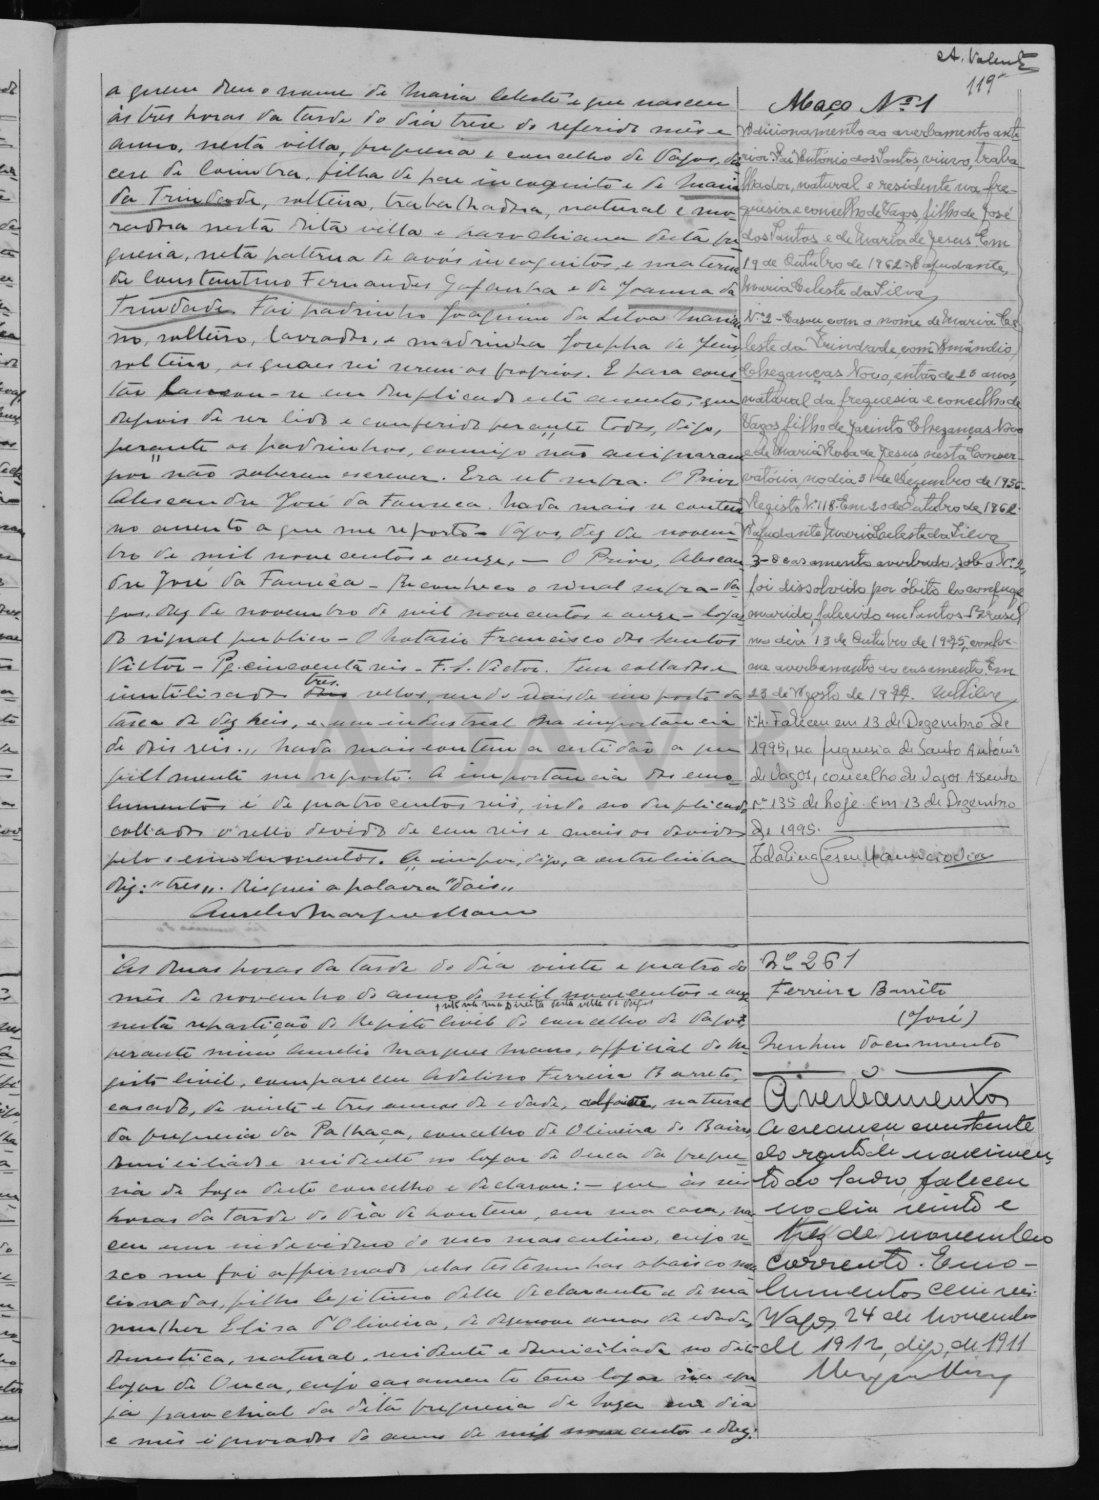 A. Valente
119
a quem deu o nome de Maria Celeste e que nasceu
ás tres horas da tarde do dia treze do referido mês e
anno, nesta villa, freguesia e concelho de Vagos, dio-
cese de Coimbra, filha de pae incognito e de Maria
da Trindade, solteira, trabalhadora, natural e mo-
radora nesta dita villa e parochiana desta fre
guesia, neta paterna de avós incognitos, e materna
de Constantino Fernandes Gafanha e de Joanna da
Trindade. Foi padrinho Joaquim da Silva Maria
no, solteiro, lavrador, e madrinha Josepha de Jesus
solteira, os quaes sei serem os proprios. E para cons-
tar lançou-se em duplicado este assento, que
depois de ser lido e conferido perante todos, digo,
perante os padrinhos, comigo não assignaram
por não saberem escrever. Era ut supra. O Prior
Alexandre José da Fonseca. Nada mais se contem
no assento a que me reporto - Vagos, dez de novem-
bro de mil nove centos e onze, - O Prior, Alexan-
dre José da Fonseca - Reconheço o sinal supra - Va-
gos, dez de novembro de mil novecentos e onze - logar
do signal publico - O Notario Francisco dos Santos
Victor - Pg. cincoenta reis - F. S. Victor. Tem collados e
inutilisados tres sellos, sendo dois de imposto da
taxa de dez reis, e um industrial da importancia
de dois reis.,, Nada mais contem a certidão a que
fielmente me reporto. A importancia dos emo-
lumentos é de quatrocentos reis, indo no duplicado
collado o sello devido de cem reis e mais os devidos
pelos emolumentos. digo, a entrelinha
diz: "tres,,. Risquei a palavra "dois,,
Aurelio Marques Mano
Maço Nº 1
Adicionamento ao averbamento ante
rior. Pai António dos Santos, viuvo, traba-
lhador, natural e residente na fre-
guesia e concelho de Vagos, filho de José
dos Santos e de Maria de Jesus. Em
19 de Outubro de 1962. A ajudante,
Maria Celeste da Silva
N.º 2 - Casou com o nome de Maria Ce-
leste da Trindade, com Amândio,
Cheganças Novo, então de 20 anos,
natural da freguesia e concelho de
Vagos, filho de Jacinto Cheganças Novo
e de Maria Rosa de Jesus, nesta Conser-
vatória, no dia 31 de Dezembro de 1936.
Registo N.º 118. Em 20 de Outubro de 1962.
A ajudante Maria Celeste da Silva
3 - O casamento averbado sob o Nº 2,
foi dissolvido por óbito do conjuge
marido, falecido em Santos - Brasil
no dia 13 de Outubro de 1975, confor-
me averbamento ao casamento. Em
23 de Agosto de
Nº 4. Faleceu em 13 de Dezembro de
1995, na freguesia de Santo António
de Vagos, concelho de Vagos. Assento
nº 135 de hoje. Em 13 de Dezembro
de 1995.
ADAVR
Ás duas horas da tarde do dia vinte e quatro do
mês de novembro do anno de mil novecentos e onze
nesta repartição do Registo Civil do concelho de Vagos,
sita na rua Direita desta villa de Vagos
perante mim Aurelio Marques Mano, official do Re
gisto Civil, compareceu Adelino Ferreira Barreto,
casado, de vinte e tres annos de edade, alfaiate, natural
da freguesia da Palhaça, concelho de Oliveira do Bairro
domiciliado e residente no logar de Ouca da fregue-
sia de Soza deste concelho e declarou: - que ás seis
horas da tarde do dia de hontem, em sua casa, nas-
ceu um individuo do sexo masculino, cujo se-
xo me foi affirmado pelas testemunhas abaixo men
cionadas, filho legitimo delle declarante e de sua
mulher Elisa d'Oliveira, de desenove annos de edade,
domestica, natural, residente e domiciliada no dito
logar de Ouca, cujo casamento teve logar na egre-
ja parochial da dita freguesia de Soza no dia
e mês ignorados do anno de mil nove centos e dez.
Nº 261
Ferreira Barrêto
(José)
Nenhum documento
Averbamentos
A creança constante
do registo de nascimen-
to ao lado, faleceu
no dia vinte e
trez de novembro
corrente. Emo-
lumentos cem reis.
Vagos, 24 de Novembro
de 1912, digo, de 1911